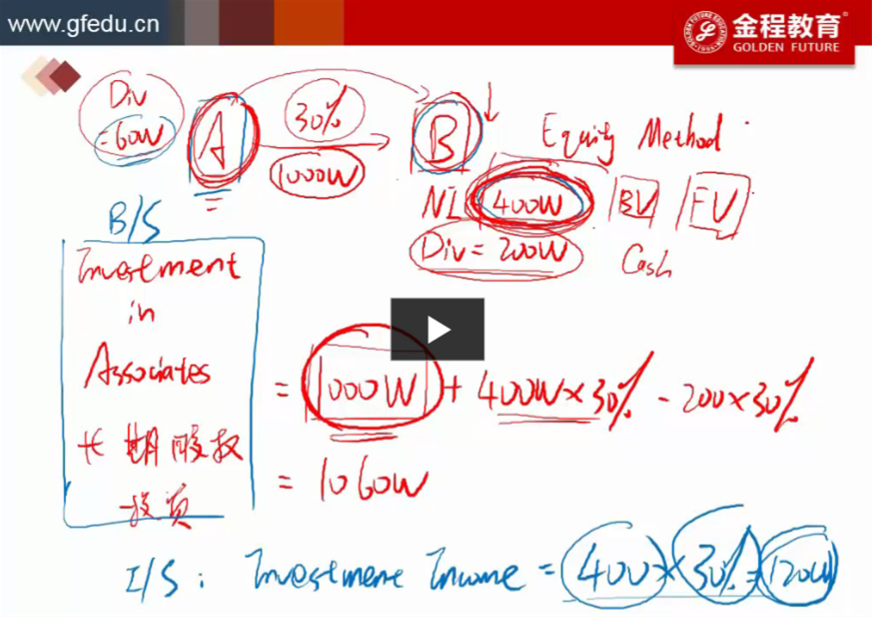 www.gfedu.cn
金程教育
GOLDEN FUTURE
Div
=60W
A
30%
1000W
B
Equity Method
NI 400W BV FV
Div = 200W
Cash
B/S
Investment
in
Associates
长期股权
投资
= 1000W + 400W×30% - 200×30%
= 1060W
I/S: Investment Income = 400×30% = 120W